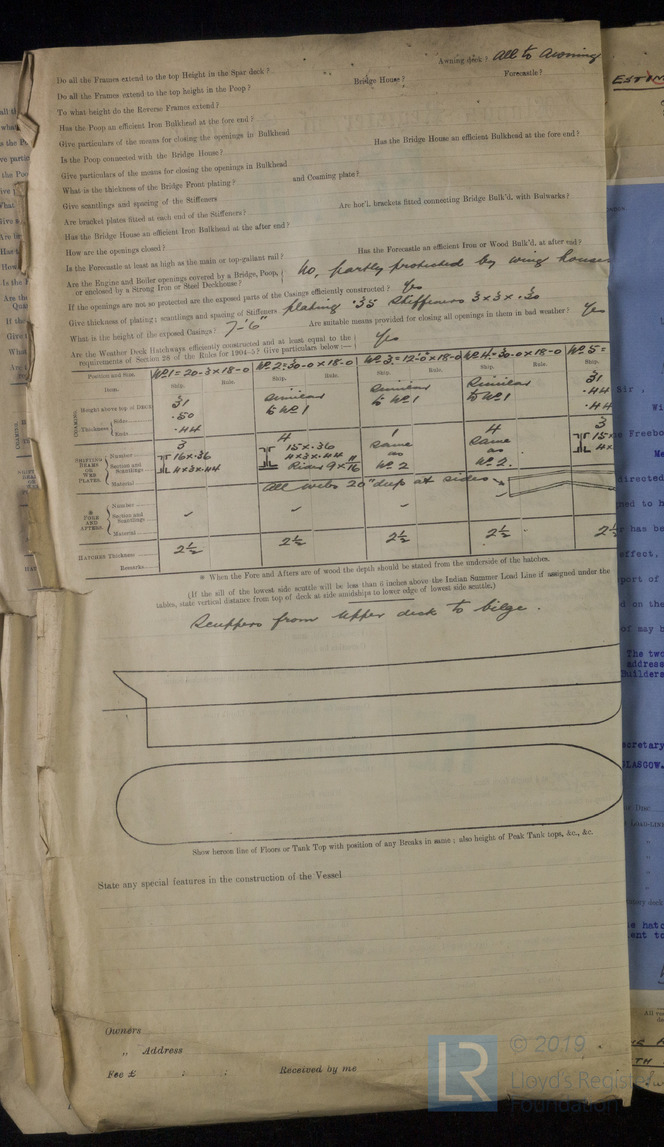 Do all the Frames extend to the top Height in the Spar deck? Awning deck? All to Awning
Do all the Frames extend to the top height in the Poop? Bridge House? Forecastle?
To what height do the Reverse Frames extend?
Has the Poop an efficient Iron Bulkhead at the fore end?
Give particulars of the means for closing the openings in Bulkhead
Is the Poop connected with the Bridge House? Has the Bridge House an efficient Bulkhead at the fore end?
Give particulars of the means for closing the openings in Bulkhead
What is the thickness of the Bridge Front plating? and Coaming plate?
Give scantlings and spacing of the Stiffeners
Are bracket plates fitted at each end of the Stiffeners? Are hor'l. brackets fitted connecting Bridge Bulk'd. with Bulwarks?
Has the Bridge House an efficient Iron Bulkhead at the after end?
How are the openings closed?
Is the Forecastle at least as high as the main or top-gallant rail? Has the Forecastle an efficient Iron or Wood Bulk'd. at after end?
Are the Engine and Boiler openings covered by a Bridge, Poop,
or enclosed by a Strong Iron or Steel Deckhouse? No, partly protected by wing houses
If the openings are not so protected are the exposed parts of the Casings efficiently constructed? Yes
Give thickness of plating; scantlings and spacing of Stiffeners plating .35 Stiffeners 3 x 3 x .30
What is the height of the exposed Casings? 7'-6" Are suitable means provided for closing all openings in them in bad weather? Yes
Are the Weather Deck Hatchways efficiently constructed and at least equal to the
requirements of Section 28 of the Rules for 1904-5? Give particulars below:— Yes
Position and Size. No 1 = 20-3 x 18-0 No 2 = 30-0 x 18-0 No 3 = 12-0 x 18-0 No 4 = 30-0 x 18-0 No 5 =
Item. Ship. Rule. Ship. Rule. Ship. Rule. Ship. Rule. Ship.
COAMING. Height above top of DECK 31 Similar Similar Similar 31
Thickness Sides .50 to No 1 to No 1 to No 1 .44
Ends .44 .44
SHIFTING BEAMS OR WEB PLATES. Number 3 4 1 4 3
Section and Scantlings 16 x .36 15 x .36 Same Same 15 x
4 x 3 x .44 4 x 3 x .44 as as 4 x
Rider 9 x 16 No 2 No 2.
Material All webs 20" deep at sides
* FORE AND AFTERS. Number
Section and Scantlings
Material
HATCHES Thickness 2½ 2½ 2½ 2½ 2½
Remarks.
* When the Fore and Afters are of wood the depth should be stated from the underside of the hatches.
(If the sill of the lowest side scuttle will be less than 6 inches above the Indian Summer Load Line if assigned under the
tables, state vertical distance from top of deck at side amidships to lower edge of lowest side scuttle.)
Scuppers from upper deck to bilge.
Show hereon line of Floors or Tank Top with position of any Breaks in same; also height of Peak Tank tops, &c., &c.
State any special features in the construction of the Vessel
Owners
„ Address
Fee £ : : Received by me
© 2019
LR
Lloyd's Register
Foundation